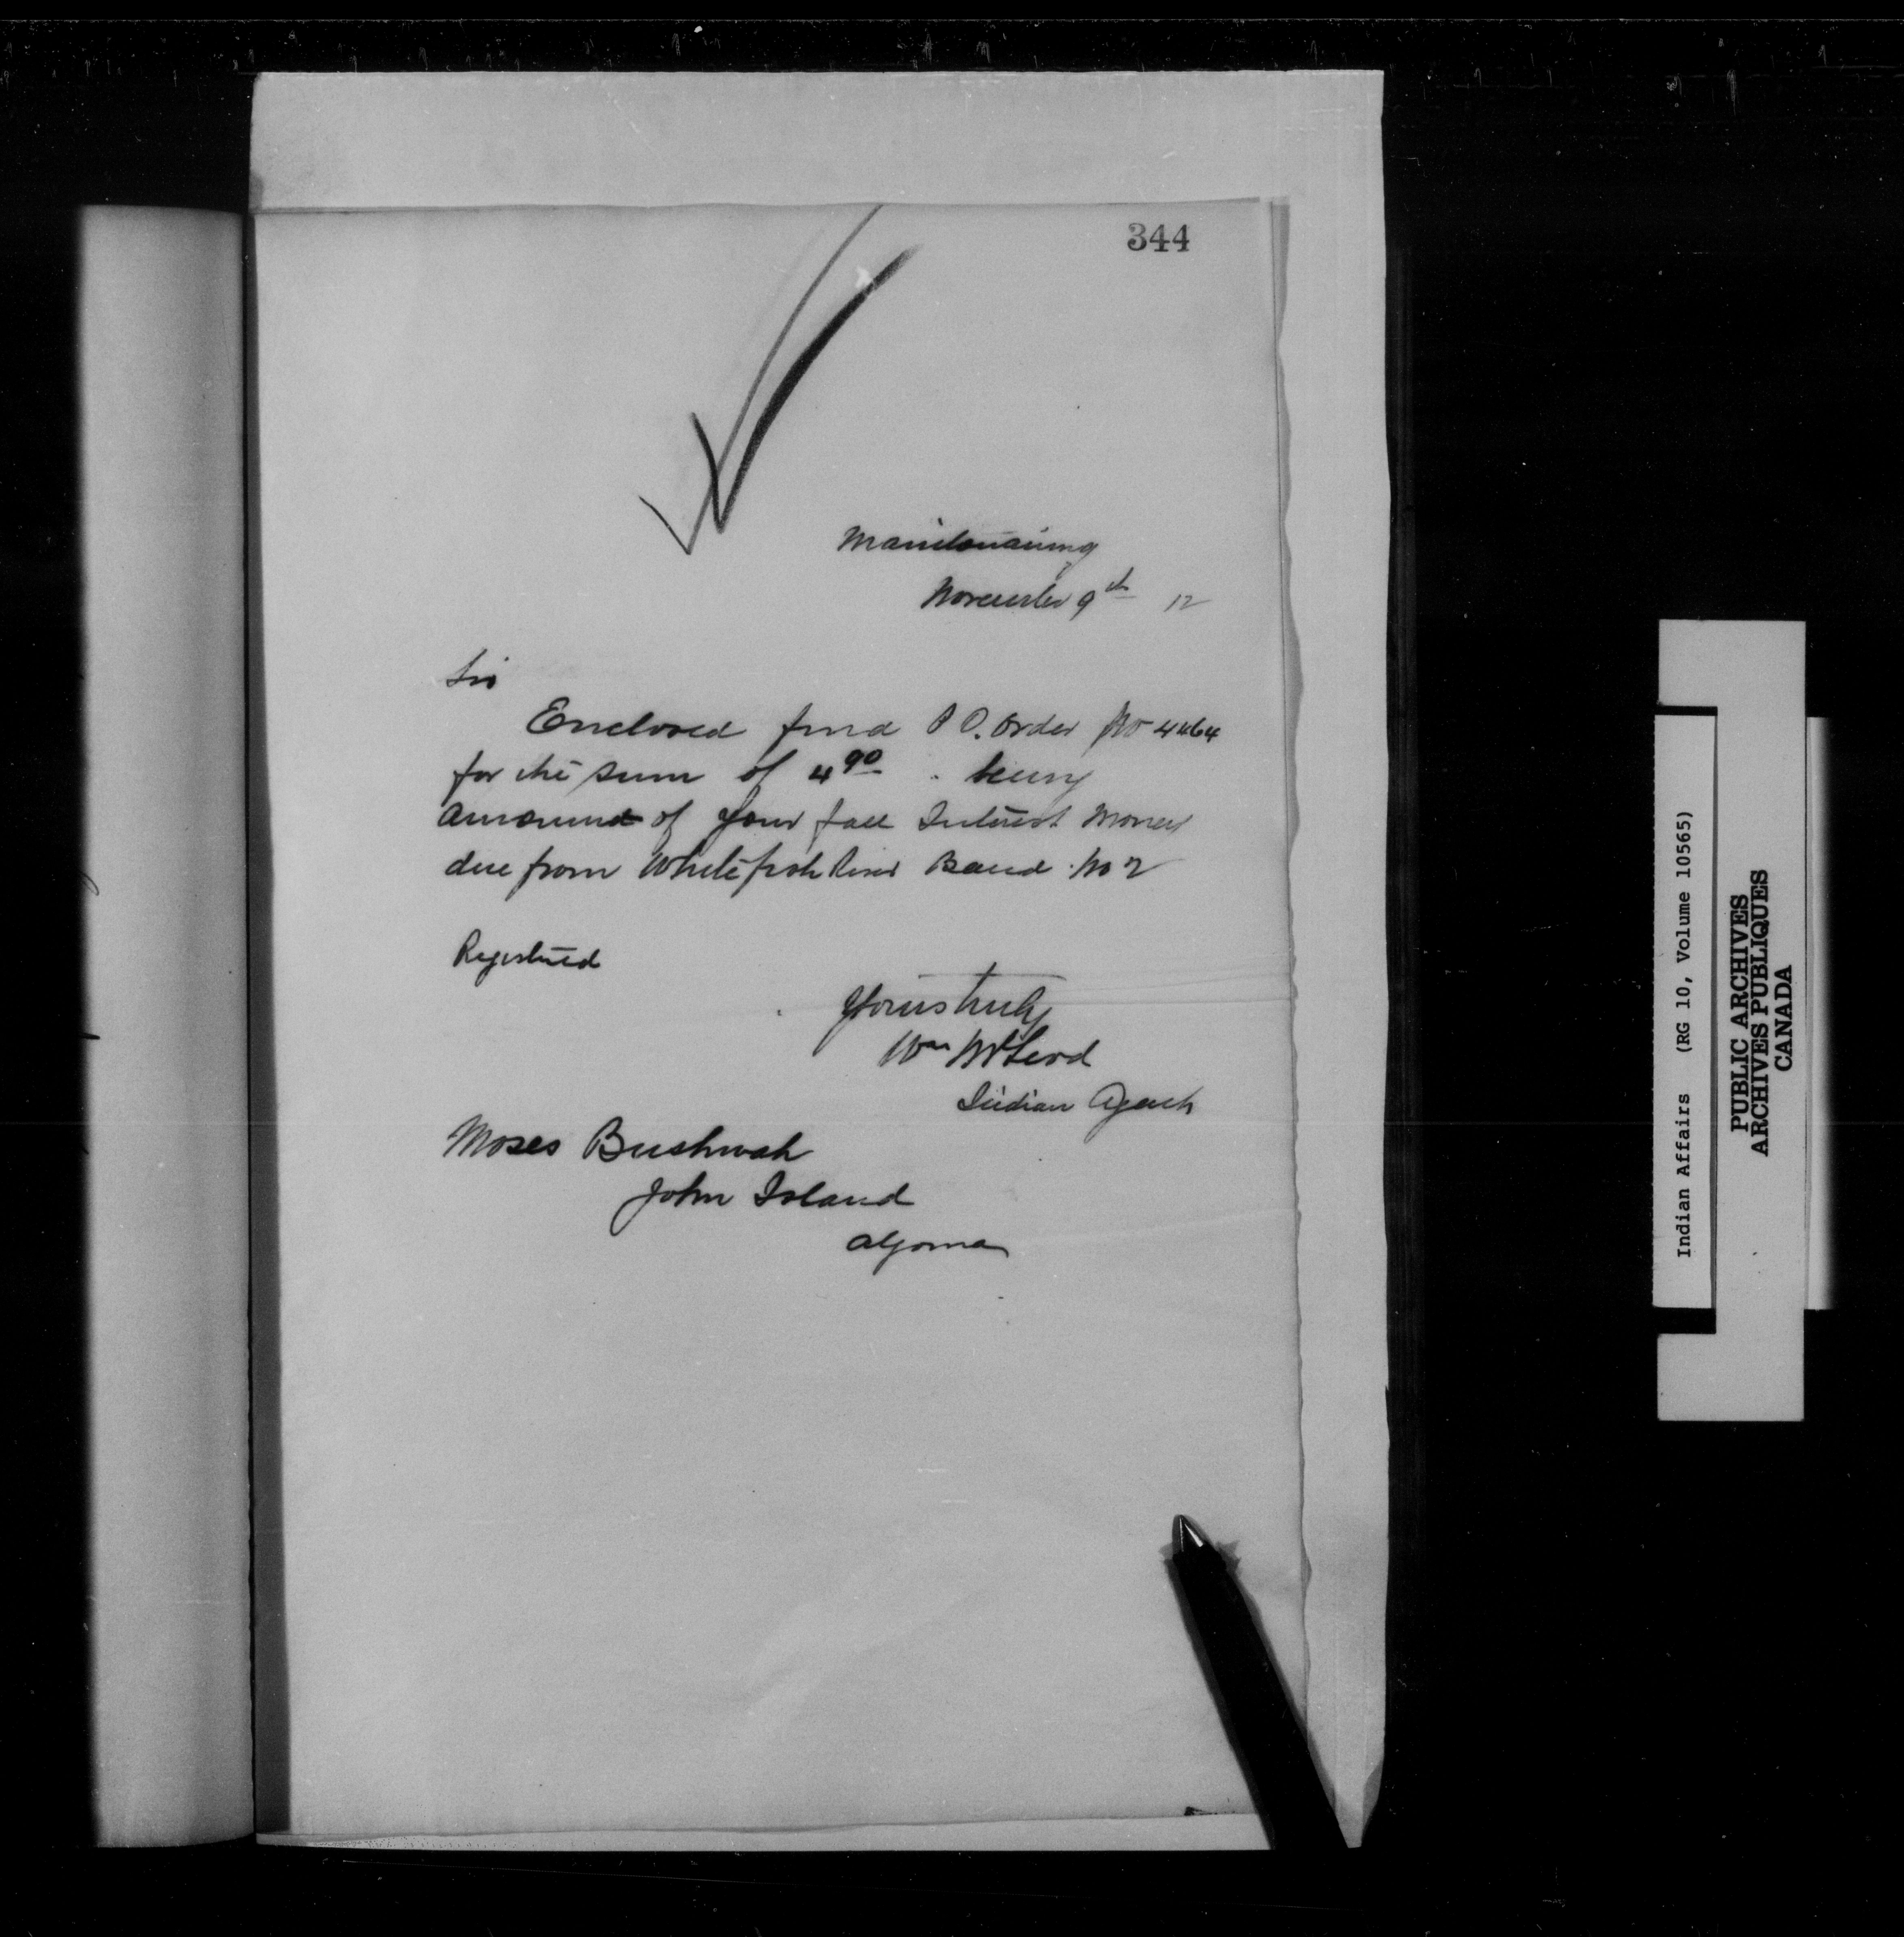 344
Manitowaning
November 9th 12
Sir
Enclosed find P O. Order No 4464
for the sum of 4 90 being
amount of your fall Interest Money
due from Whitefish River Band No 2
Registered
Yours truly
Wm McLeod
Indian Agent
Moses Bushwah
John Island
Algoma
Indian Affairs (RG 10, Volume 10565)
PUBLIC ARCHIVES
ARCHIVES PUBLIQUES
CANADA